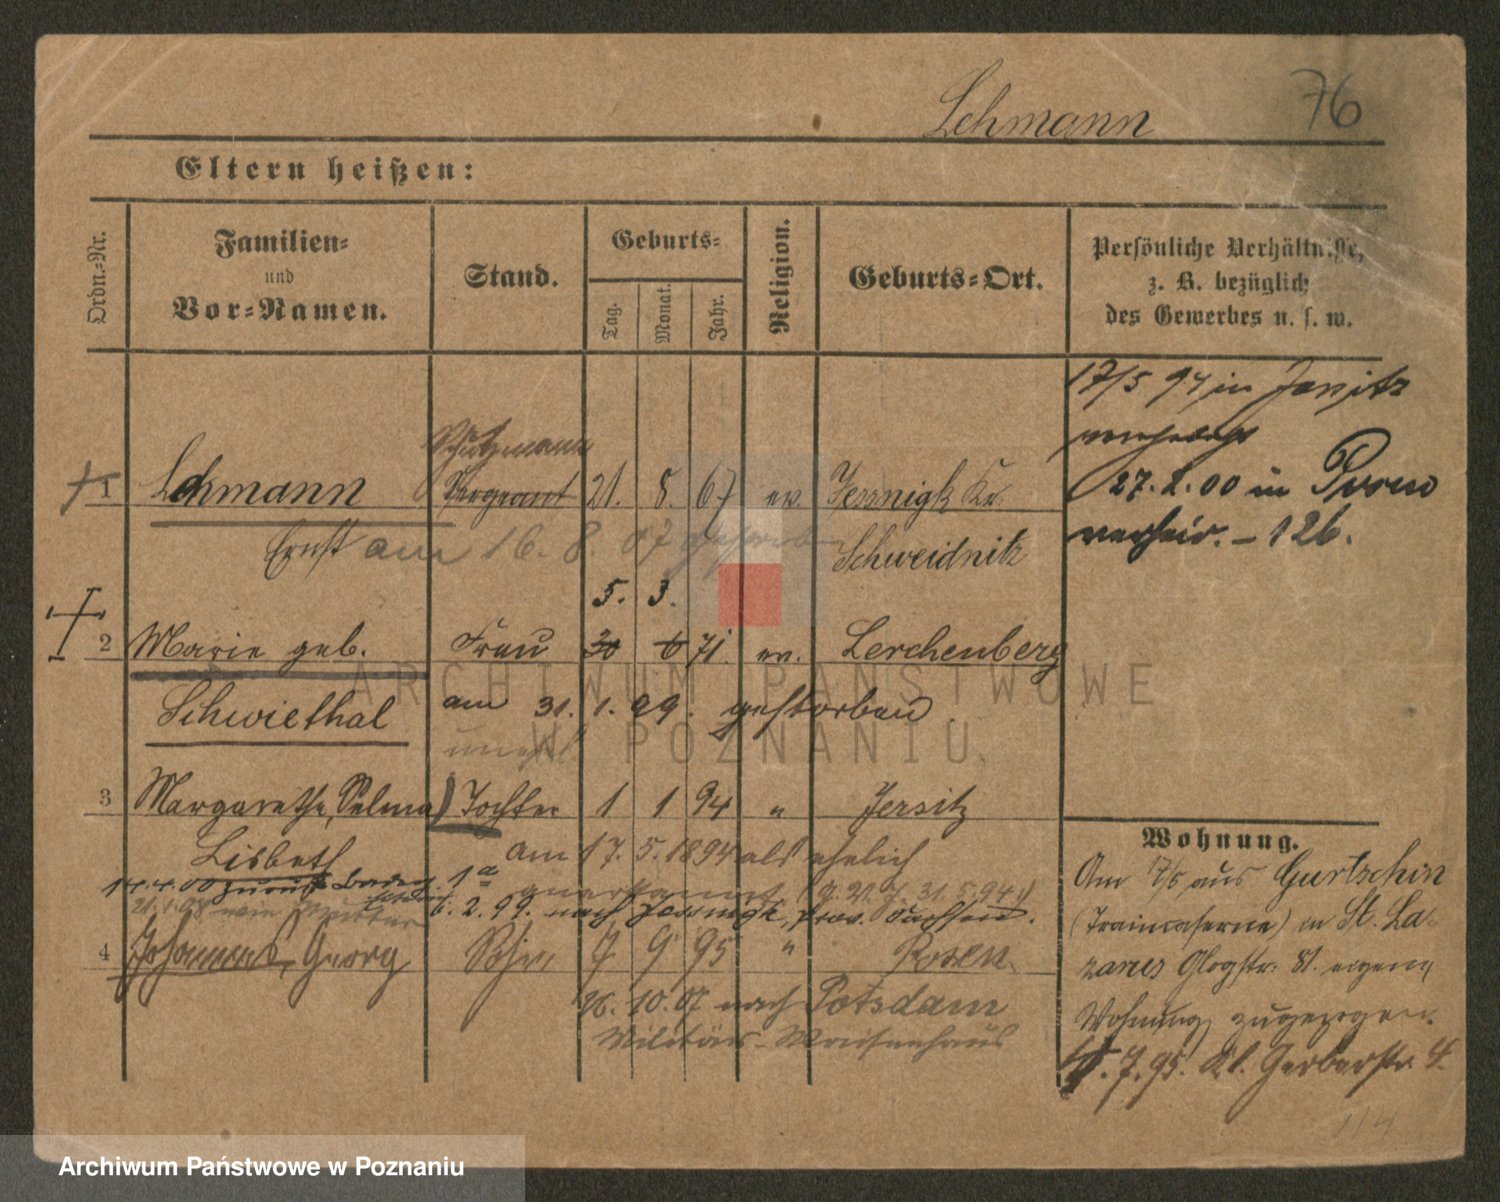 Lehmann 76
Eltern heißen:
Ordn.-Nr.
Familien-
und
Vor-Namen.
Stand.
Geburts-
Tag.
Monat.
Jahr.
Religion.
Geburts-Ort.
Persönliche Verhältnisse,
z. B. bezüglich
des Gewerbes u. s. w.
17/5 94 in Jersitz
27. 2. 00 in Posen
verheir. – 126.
Schutzmann
1 Lehmann Sergeant 21. 8. 67 ev. Jessnigk Kr.
Ernst am 16. 8. 07 gestorben Schweidnitz
5. 3.
2 Marie geb. Frau 30 6 71. ev. Lerchenberg
Schwiethal am 31. 1. 99. gestorben
unehel
3 Margarethe, Selma Tochter 1 1 94 " Jersitz
Lisbeth am 17. 5. 1894 als ehelich
14.4.00 zurück 1a anerkannt
6. 2. 99. nach Jessnigk, Prov. Sachsen.
4 Johannes, Georg Sohn 7 9 95 " Posen.
26. 10. 07 nach Potsdam
Militär-Waisenhaus
Wohnung.
Am 17/5 aus Gurtschin
(Traincaserne) in St. La-
zarus Glogstr. 81. eigene
Wohnung zugezogen.
7. 95. Kl. Gerberstr. 4.
114
ARCHIWUM PAŃSTWOWE
W POZNANIU
Archiwum Państwowe w Poznaniu